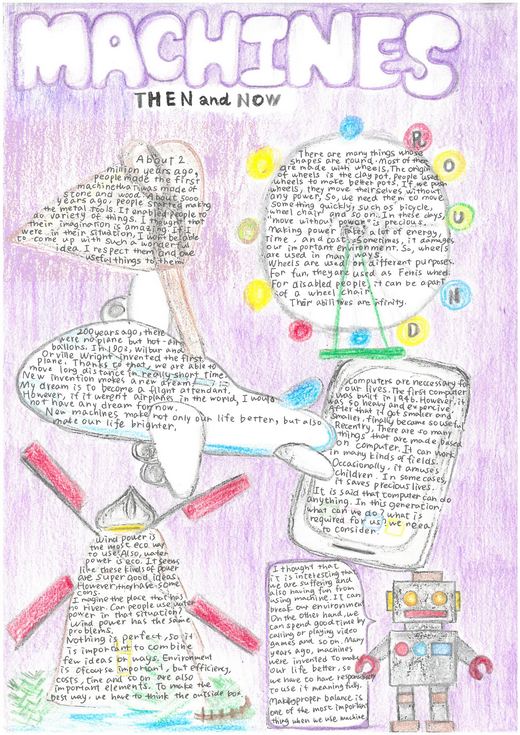 MACHINES
THEN and NOW
About 2
million years ago,
people made the first
machine that was made of
stone and wood. About 5000
years ago, people started making
the metal tools. It enabled people to
variety of things. I thought that
their imagination is amazing. If I
were in their situation, I won't be able
to come up with such a wonderful
idea. I respect them and one
useful things to them.
R
O
U
N
D
There are many things whose
shapes are round. Most of them
are made with wheels. The origin
of wheels is the clay pot. People used
wheels to make better pots. If we push
wheels, they move themselves without
any power. So, we need them to move
something quickly, such as bicycle,
wheel chair and so on. In these days,
"move without power" is precious.
Making power takes a lot of energy,
time, and cost. Sometimes, it damages
our important environment. So, wheels
are used in many ways.
Wheels are used on different purposes.
For fun, they are used as Ferris wheel.
For disabled people, it can be a part
of a wheel chair.
Their abilities are infinity.
200 years ago, there
were no plane but hot-air
ballons. In 1902, Wilbur and
Orville Wright invented the first
plane. Thanks to that, we are able to
move long distance in really short time.
New invention makes a new dream.
My dream is to become a flight attendant.
However, if it weren't airplanes in the world, I would
not have any dream for now.
Now machines make not only our life better, but also
make our life brighter.
Computers are neccessary for
our lives. The first computer
was built in 1946. However, it
was so heavy and expencive.
After that it got smaller and
smaller, finally became so useful.
Recentry, There are so many
things that are made based
on computer. It can work
in many kinds of fields.
Occasionally, it amuses
children. In some cases,
it saves precious lives.
It is said that computer can do
anything. In this generation,
what can we do? what is
required for us? we need
to consider.
Wind power is
the most eco way
to use. Also, water
power is eco. It seems
like these kinds of power
are super good ideas.
However, they have some
cons.
Imagine the place that has
no river. Can people use water
power in that situation?
Wind power has the same
problems.
Nothing is perfect, so it
is important to combine
few ideas or ways. Environment
is ofcourse important, but efficiency,
costs, time and so on are also
important elements. To make the
best way, we have to think the outside box.
I thought that
it is interesting that
we are suffering and
also having fun from
using machine. It can
break our environment.
On the other hand, we
can spend good time by
calling or playing video
games and so on. Many
years ago, machines
were invented to make
our life better, so
we have to have responsibility
to use it meaning fully.
Making proper balance is
one of the most important
thing when we use machine